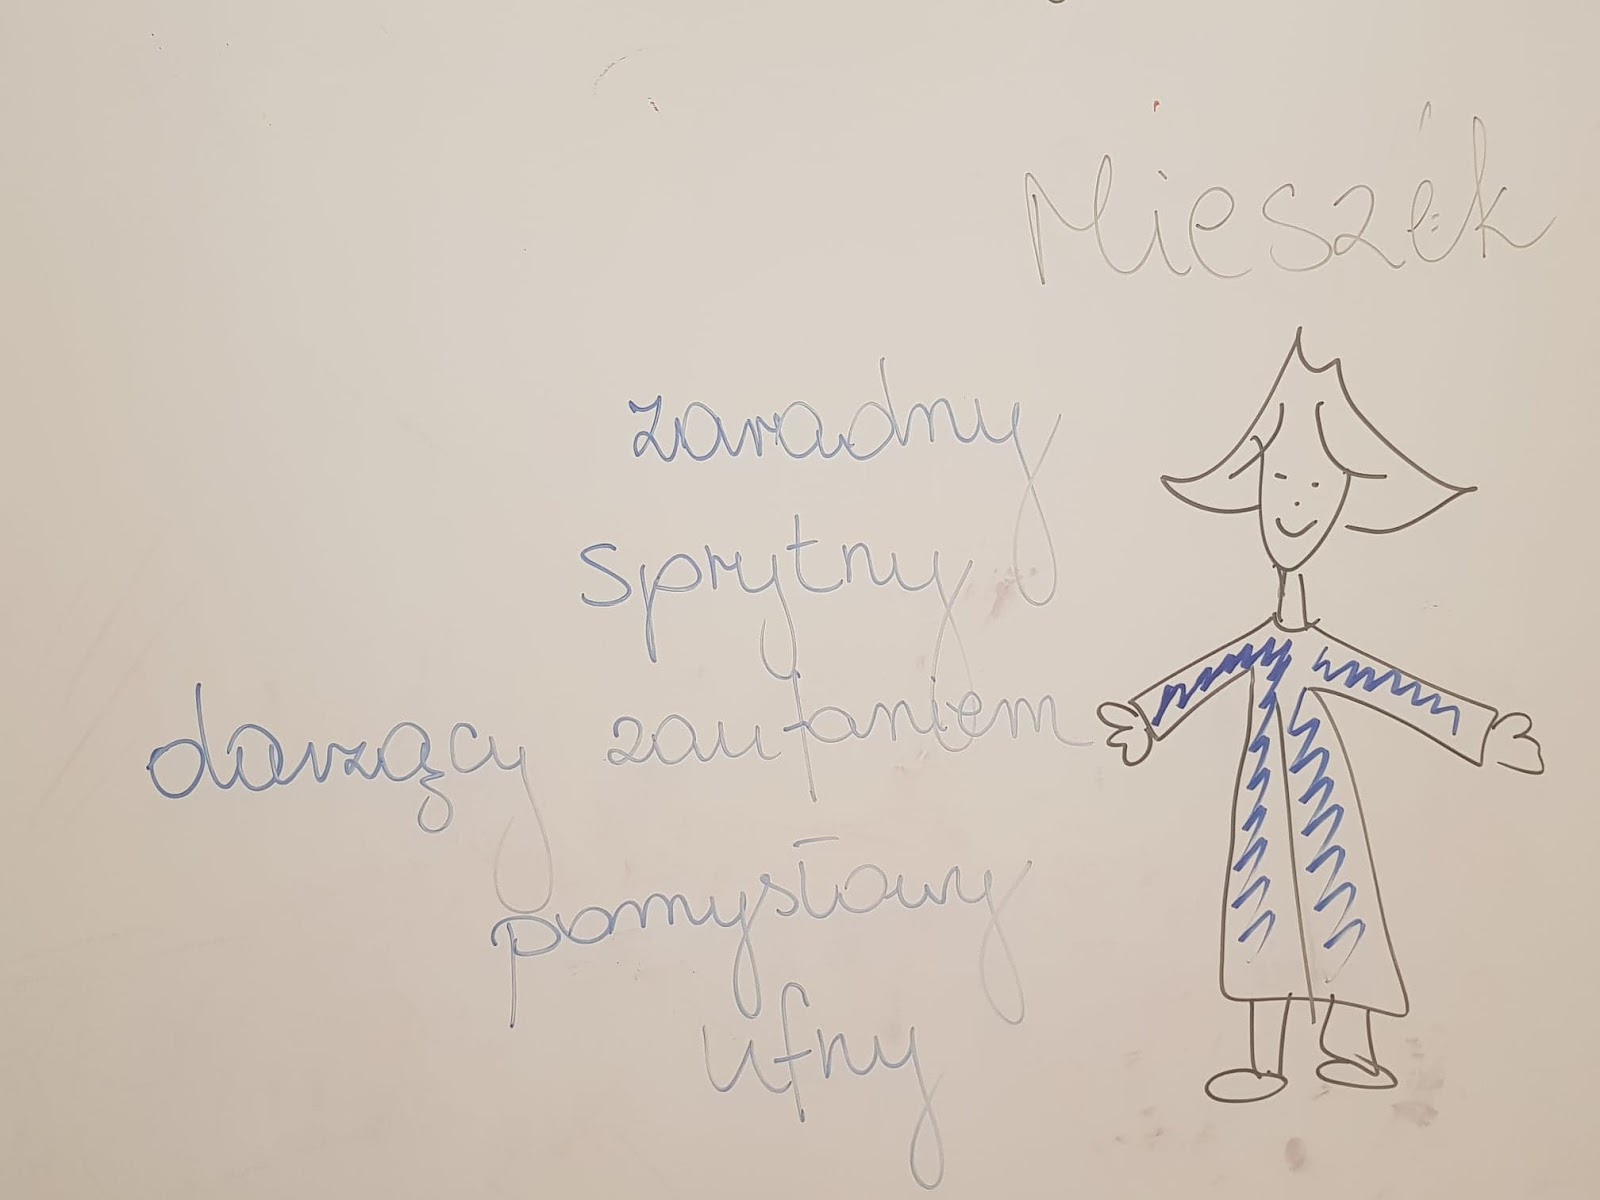 Mieszek
zaradny
sprytny
darzący zaufaniem
pomysłowy
ufny